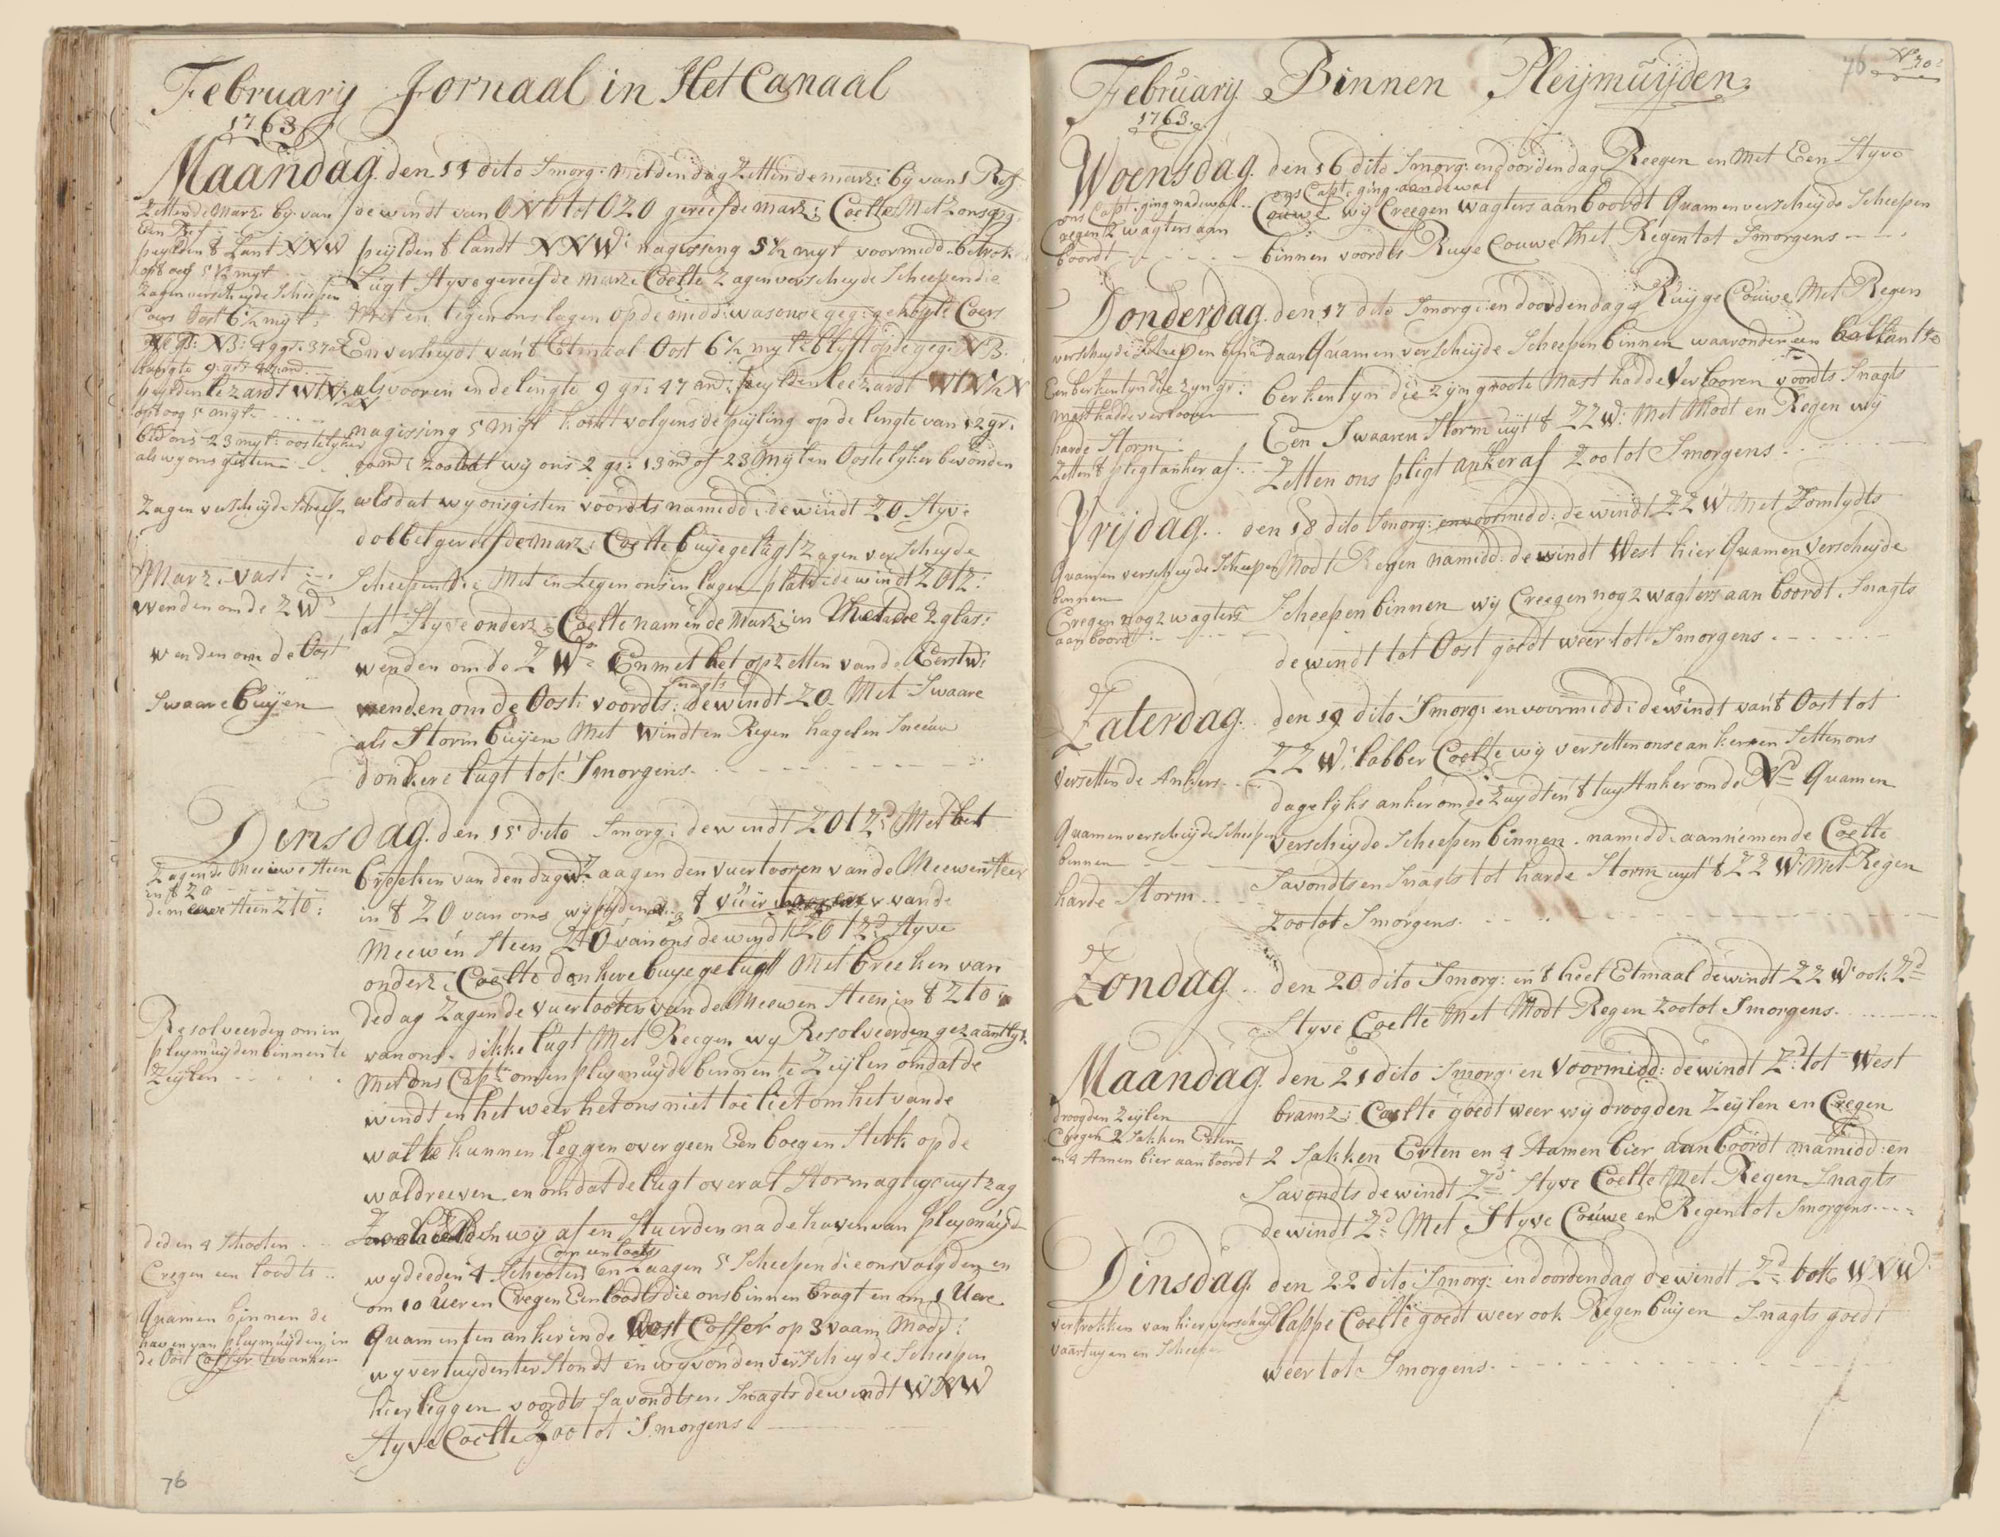 February Jornaal in Het Canaal
1763
Maandag den 14 dito Smorg: met den dag Zetten de marz: by van 1 Ref
de windt van ONO tot OZO gereefde marz: Coelte Met Zons opg:
peylden 't landt NNW: na gissing 5½ myt voormidd: betrok
Lugt Styve gereefde marz: Coelte Zagen verscheyde Scheepen die
Met en tegen ons lagen op de midd: was onse geg: gekoppte Coers
En verheydt van't Etmaal Oost 6½ myt blyft op de geg: NB:
als vooren en de lengte 9 gr: 47 m: peylden leezardt WTN½N
na gissing 5 myt komt volgens de peyling op de lengte van 12 gr:
zoodat wij ons 2 gr: 13 m of 23 Myten Oostelyker bevonden
als dat wy ons gisten voordts namidd: de windt ZO Styve
dobbel gereefde marz: Coelte buyege lugt Zagen verscheyde
Scheepen die Met en tegen ons in lagen plat de windt ZOTZ:
tot Styve onderz: Coelte namen de Marz: in Met de 2 glas:
wenden om de ZW En met het opzetten van de Eerste w:
snagts
wenden om de Oost: voordts: de windt ZO Met Swaare
als Storm buijen Met windt en Regen hagel en Sneeuw
donkere lugt tot Smorgens
Zetten de Marz: by van
Een Ref
peylden 't Lant NNW
op 5½ myt
Zagen verscheyde Scheepen
Coers Oost 6½ myt:
lengte 9 gr: 47 m:
peylden leezardt WTN
op oog 5 myt
bevonden 23 myt: oostelyker
als wy ons gisten
Zagen verscheyde Scheep:
Marz: vast
wenden om de ZW
wenden om de Oost
Swaare buijen
Dinsdag den 15 dito Smorg: de windt ZOTZ: Met het
breeken van den dag Zaagen den vuertooren van de Meewen Steen
in 't ZO van ons wij peyden 't vuer van de
Meewen Steen ZTO van ons de windt ZOTZ: Styve
onderz: Coelte donkere buyege lugt Met breeken van
de dag Zagen de vuertooren van de Meewen Steen in 't ZTO
van ons dikke lugt Met Regen wy Resolveerden gezaantlyk
Met ons Captn om in pleymuyde binnen te Zeylen om dat de
windt en het weer het ons niet toe liet om het van de
wal te kunnen leggen over geen Een boeg en Sterk op de
wal dreeven en om dat de lugt over al Stormagtig uyt zag
Zoo hielden wy af en Stuerden na de haven van pleymuyde
wy deeden 4 Schooten en Zaagen 5 Scheepen die ons volgden en
om een loots
om 10 Ueren Cregen Een loodts die ons binnen bragt en om 1 Uere
Quamen ten anker in de Oost Coffer op 3 vaam Modd:
wy vertuyden ter Stondt en wy vonden verscheyde Scheepen
hier leggen voordts Savondts en Snagts de windt WNW
Styve Coelte Zoo tot Smorgens
Zagen de Meewe Steen
in 't ZO
de meewe Steen ZTO:
Resolveerden om in
pleymuyden binnen te
Zeylen
deden 4 Schooten
Cregen een loodts
Quamen binnen de
haven van pleymuyden in
de Oost Coffer ten anker
76
February Binnen Pleijmuijden:
1763
76
Woensdag den 16 dito Smorg: en door den dag Reegen en Met Een Styve
ons Capt: ging aan de wal
Couwe wij Creegen wagters aan boordt Quamen verscheyde Scheepen
binnen voordts Ruye Couwe Met Regen tot Smorgens
ons Capt: ging na de wal
cregen 2 wagters aan
boordt
Donderdag den 17 dito Smorg: en door den dag Ruijge Couwe Met Regen
daar Quamen verscheijde Scheepen binnen waaronder een hollantse
berkentyn die zyn groote Mast hadde Verlooren voordts Snagts
Een Swaaren Storm uyt 't ZZW: Met Modt en Regen wy
Zetten ons pligt anker af Zoo tot Smorgens
verscheyde Scheepen binnen
Een berkentyn die zyn gr:
mast hadde verlooren
harde Storm
Zetten 't pligt anker af
Vrijdag den 18 dito Smorg: en voormidd: de windt ZZW Met Zomtydts
Modt Regen namidd: de windt West hier Quamen verscheijde
Scheepen binnen wij Creegen nog 2 wagters aan boordt Snagts
de windt tot Oost goedt weer tot Smorgens
Quamen verscheyde Scheepen
binnen
Cregen nog 2 wagters
aan boordt
Zaterdag den 19 dito Smorg: en voormidd: de windt van't Oost tot
ZZW: labber Coelte wij versetten onse ankers en Setten ons
dagelyks anker om de Zuydt en 't tuy Anker om de N Quamen
verscheyde Scheepen binnen namidd: aannemende Coelte
Savondts en Snagts tot harde Storm uyt 't ZZW: Met Regen
Zoo tot Smorgens
Versetten de Ankers
Quamen verscheyde Scheepen
binnen
harde Storm
Zondag den 20 dito Smorg: en 't heel Etmaal de windt ZZW: ook Z
Styve Coelte Met Modt Regen Zoo tot Smorgens
Maandag den 21 dito Smorg: en Voormidd: de windt Z: tot West
bramz: Coelte goedt weer wij droogden Zeylen en Cregen
2 Sakken Erten en 4 Aamen bier aan boordt namidd: en
Savondts de windt Z Styve Coelte Met Regen Snagts
de windt Z Met Styve Couwe en Regen tot Smorgens
droogden Zeylen
Cregen 2 Sakken Erten
en 4 Amen bier aan boordt
Dinsdag den 22 dito Smorg: en door den dag de windt Z tot WNW:
Slappe Coelte goedt weer ook Regen buijen Snagts goedt
weer tot Smorgens
vertrokken van hier verscheyde
vaartuygen en Scheepen